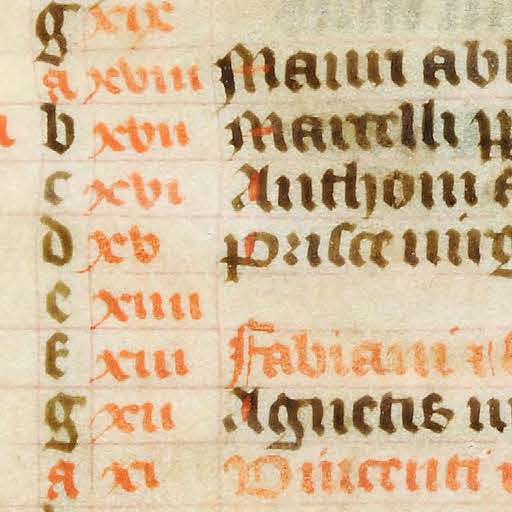 g xix
a xviii Mauri abb
b xvii Marcelli p
c xvi Anthonii a
d xv Prisce virg
e xiiii
f xiii Fabiani
g xii Agnetis vi
a xi Vincentii